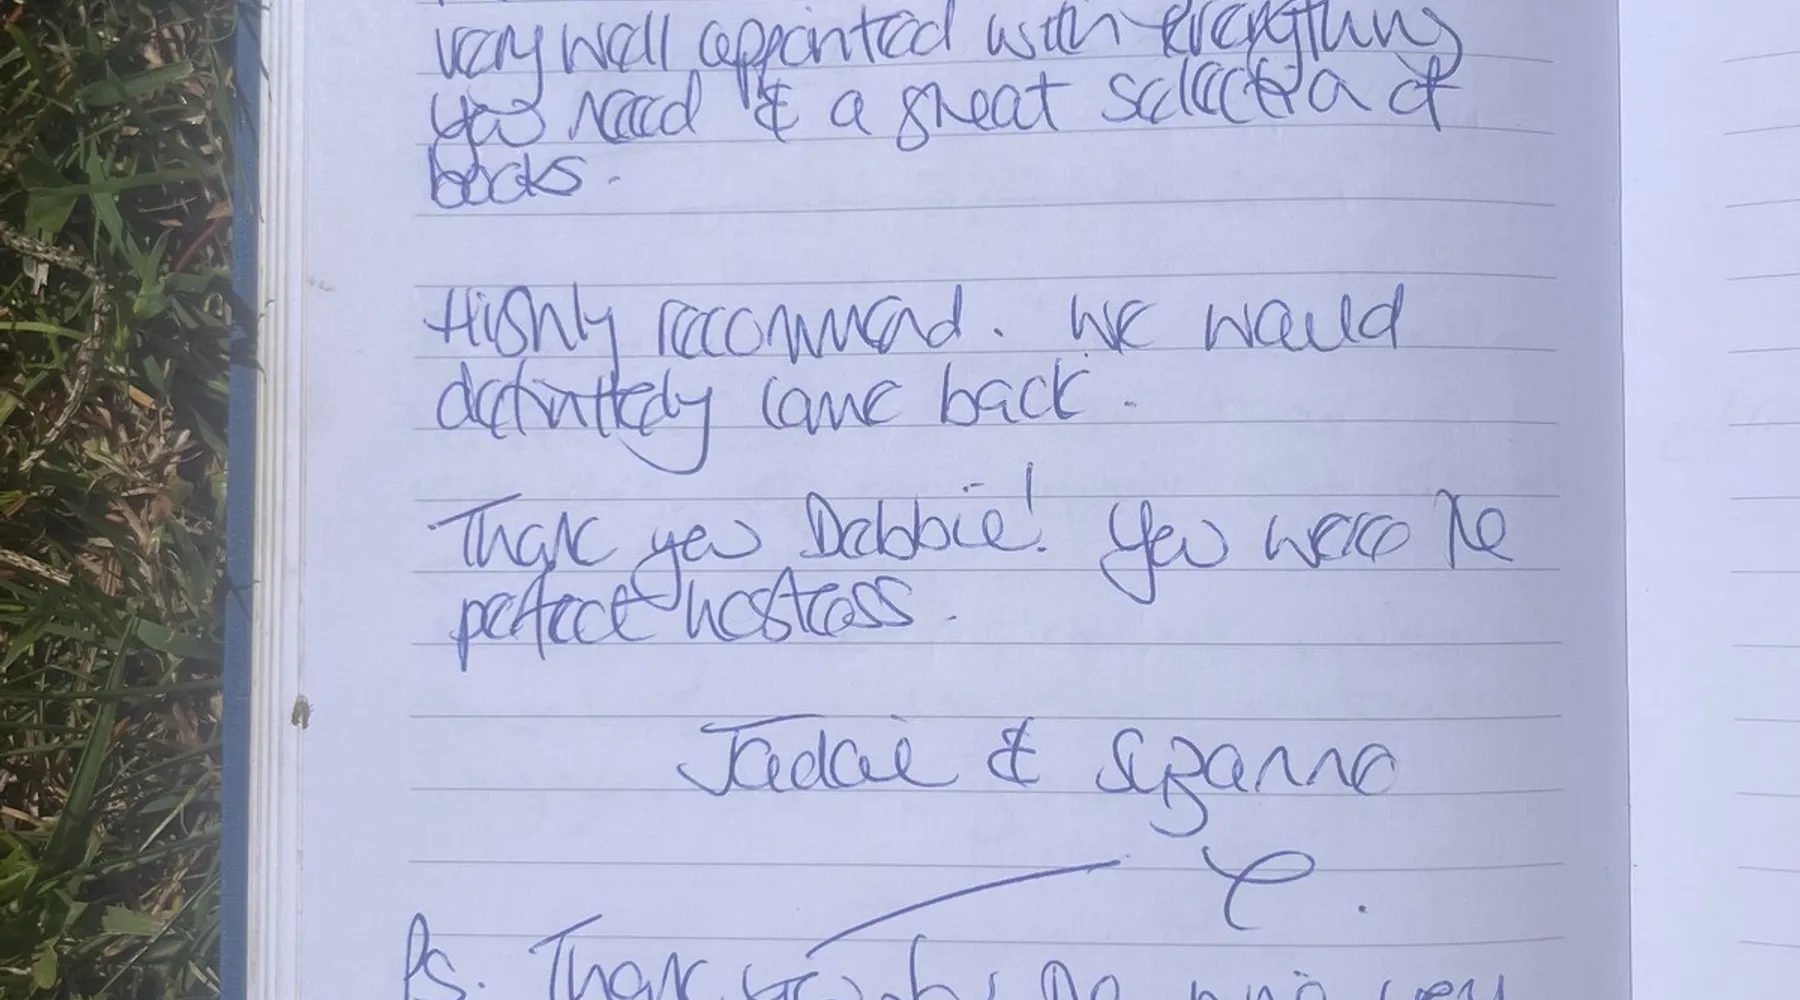 very well appointed with everything
you need & a great selection of
books.
Highly recommend. We would
definitely come back.
Thank you Debbie! You were the
perfect hostess.
& Suzanne
Ps. Thank you for the wine very